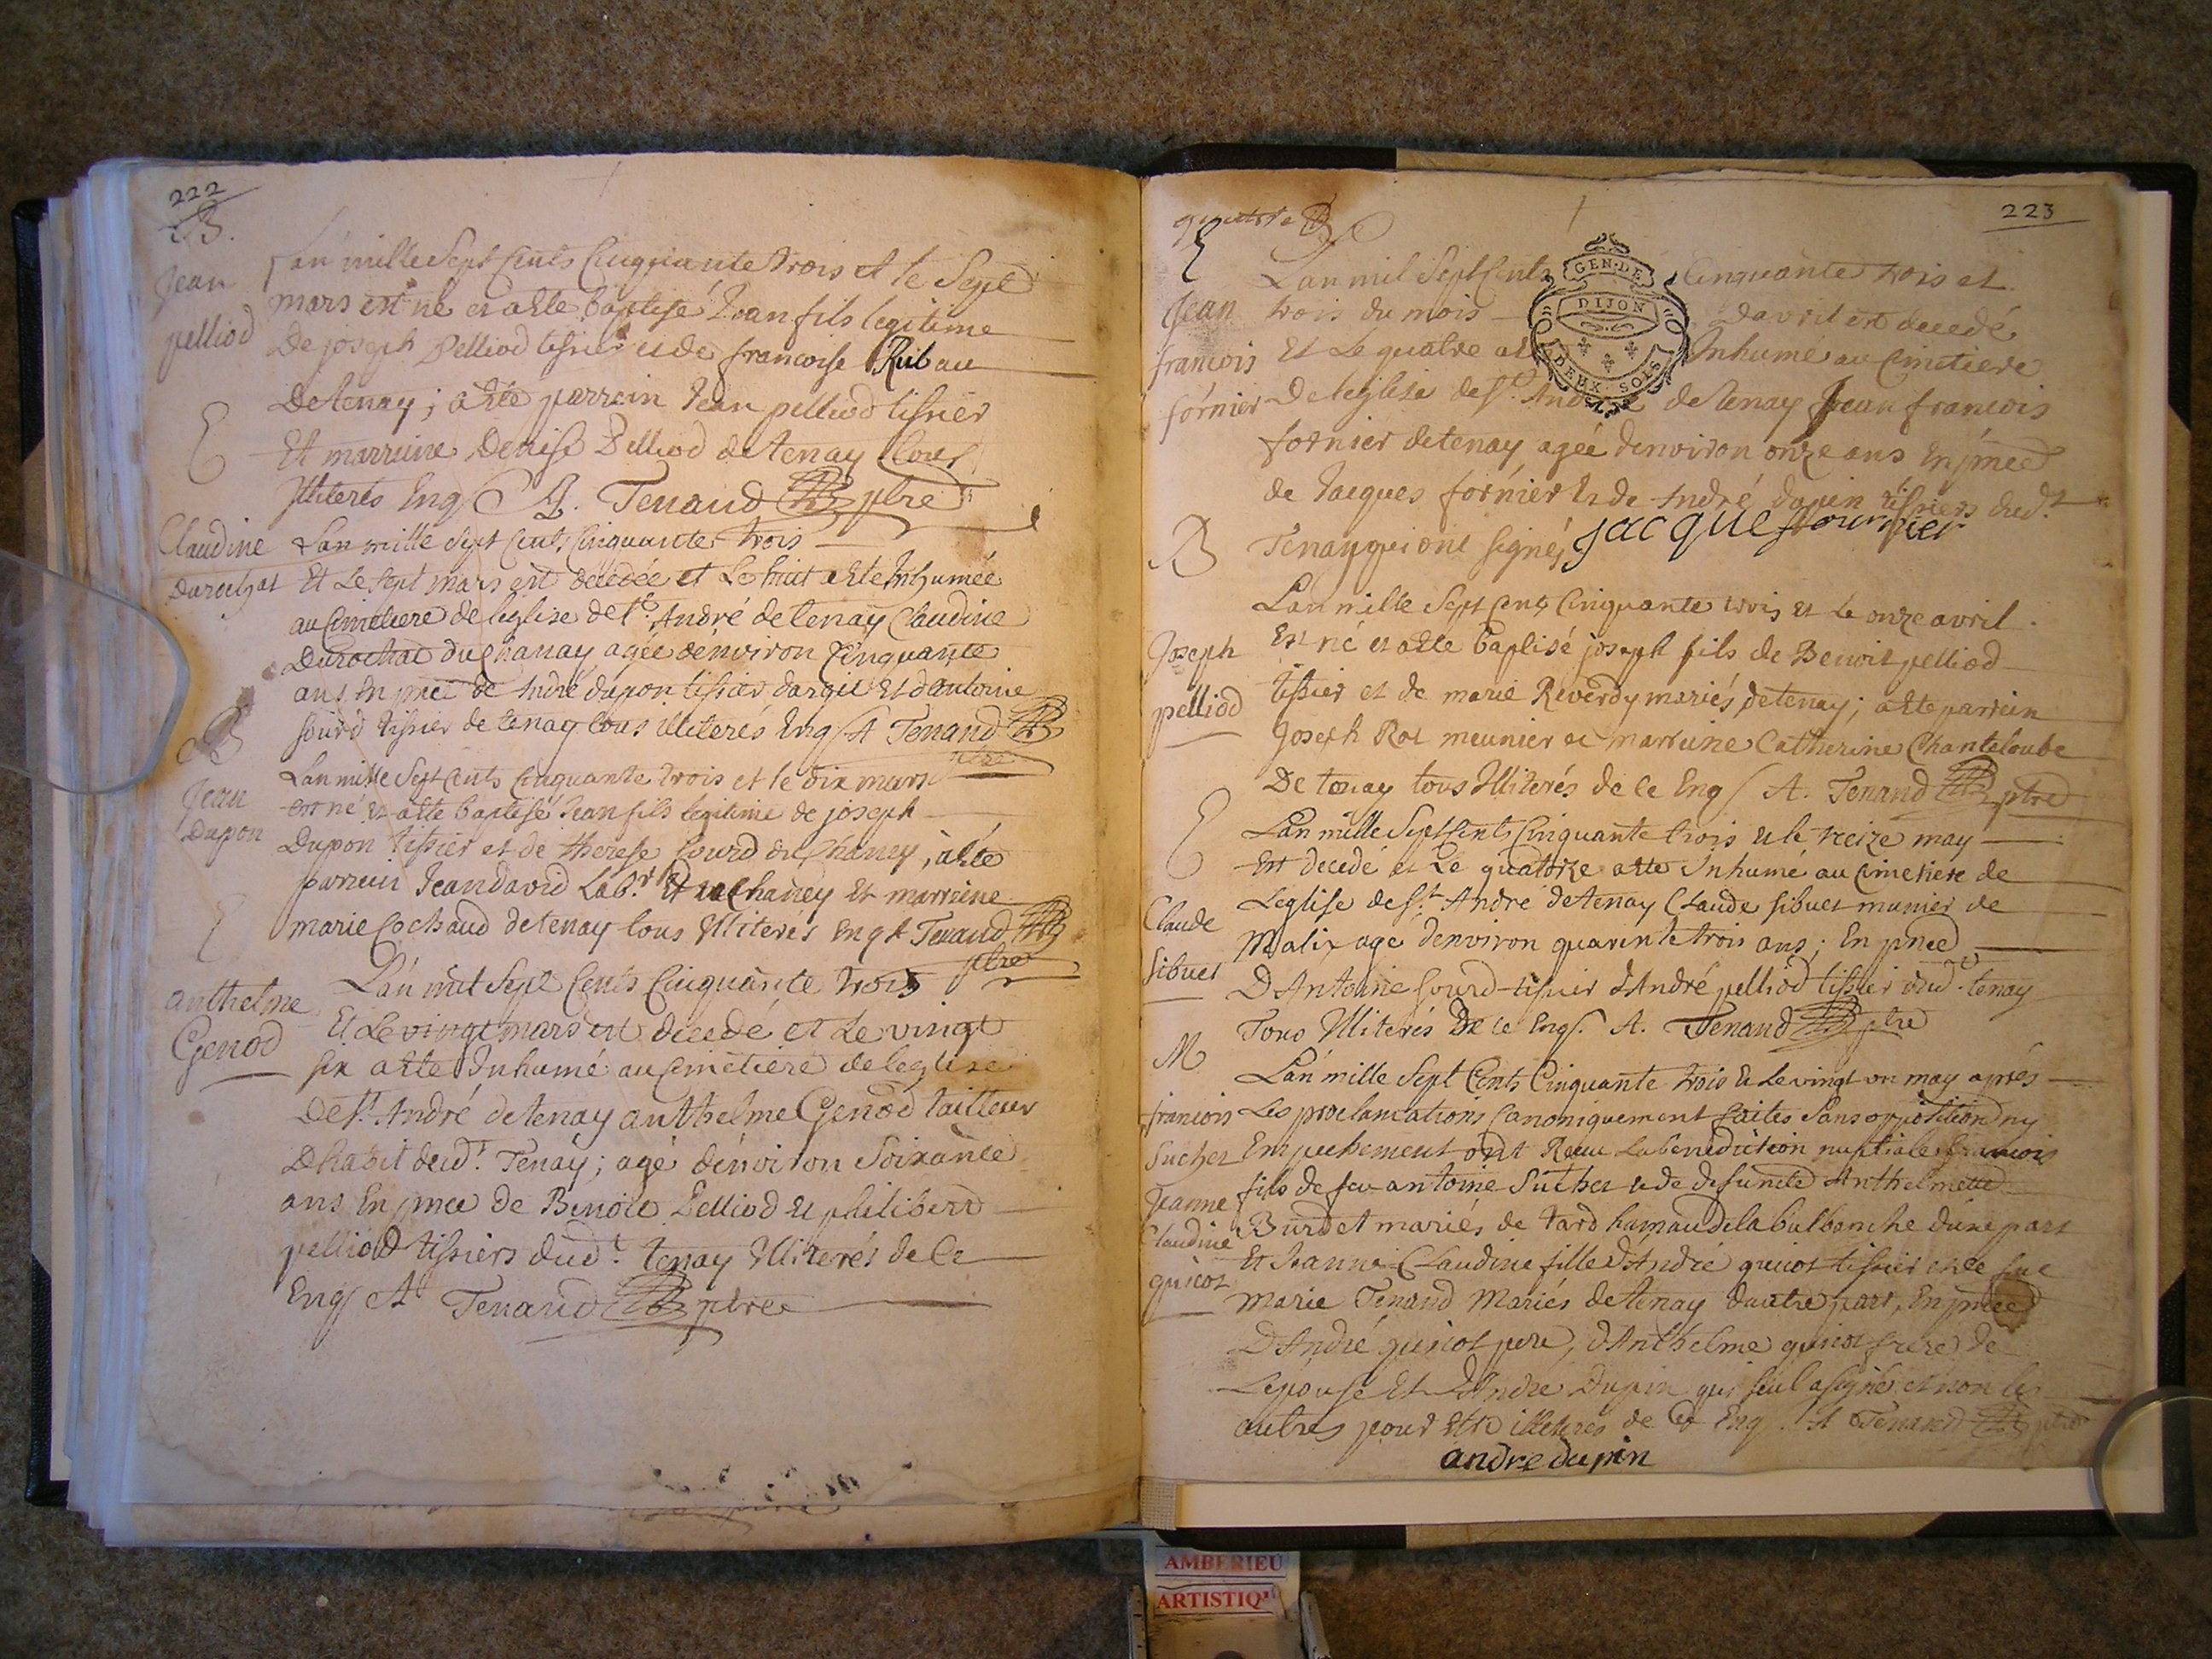 222
B.
Jean
pelliod
Lan mille Sept Cents Cinquante trois et le Sept
mars est né et a été baptisé Jean fils legitime
De joseph Pelliod tissier et de francoise Rubau
De tenay; a été parrein Jean pelliod tissier
Et marreine Denise Pelliod de tenay tous
Illiterés Enq A. Tenand ptre
E
Claudine
Durochat
Lan mille Sept Cents Cinquante trois
Et Le sept mars est decedée et Le huit a été Inhumée
au Cimetiere de leglise de St. André de tenay Claudine
Durochat du Chanay agée denviron Cinquante
ans En pnce de André dupon tissier dargil Et dantoine
sourd tissier de tenay tous illiterés Enq A Tenand
ptre
B
Jean
Dupon
Lan mille Sept Cents Cinquante trois et le dix mars
est né et a été baptisé Jean fils legitime de joseph
Dupon tissier et de therese sourd du Chaney, a été
parrein Jean david Lab.r du Chaney Et marreine
marie Cochaud de tenay tous Illiterés Enq A Tenand
ptre
E
anthelme
Genod
Lan mil Sept Cents Cinquante trois
Et Le vingt mars est decedé et Le vingt
six a été Inhumé au Cimetiere de leglise
De St. André de tenay anthelme Genod tailleur
Dhabit dud.t Tenay; agé denviron Soixante
ans En pnce de Benoit Pelliod et philibert
pelliod tissiers dud.t tenay Illiterés de Ce
Enq A Tenand ptre
223
quatre
E
Jean
francois
fornier
Lan mil Sept Cents Cinquante trois et
trois du mois davril est decedé
Et Le quatre a été Inhumé au Cimetiere
GEN. DE
DIJON
DEUX. SOLS
De leglise de St. André de tenay Jean francois
fornier de tenay agée denviron onze ans En pnce
de Jacques fornier Et de André dupin tissiers dud.t
Tenay qui ont signés jacque fournier
B
Joseph
pelliod
Lan mille Sept Cents Cinquante trois et Le onze avril
Est né et a été baptisé joseph fils de Benoit pelliod
tissier et de marie Reverdy mariés de tenay; a été parrein
Joseph Roi meunier et marreine Catherine Chanteloube
De tenay tous Illiterés de Ce Enq A. Tenand ptre
E
Claude
sibuet
Lan mille Sept Cents Cinquante trois et le treize may
Est decedé et Le quatorze a été Inhumé au Cimetiere de
Leglise de St. André de tenay Claude sibuet munier de
Malix agé denviron quarente trois ans; En pnce
D Antoine sourd tissier d André pelliod tissier dud.t tenay
Tous Illiterés De Ce Enq. A. Tenand ptre
M
francois
Sucher
Jeanne
Claudine
quicot
Lan mille Sept Cents Cinquante trois Et Le vingt un may aprés
Les proclamations Canoniquement faites Sans opposition ny
Empechement ont Reçu La benediction nuptiale francois
fils de feu antoine Sucher et de defunte Anthelmette
Burdet mariés de tard hamaud de la balbenche dune part
Et Jeanne Claudine fille d André quicot tissier et de fue
Marie Tenand Mariés de tenay dautre part, En pnce
D André quicot pere, d Anthelme quicot frere de
Lepouse Et d Andre Dupin qui seul a signé et non les
autres pour etre illiterés de Ce Enq. A Tenand ptre
andre dupin
AMBERIEU
ARTISTIQ